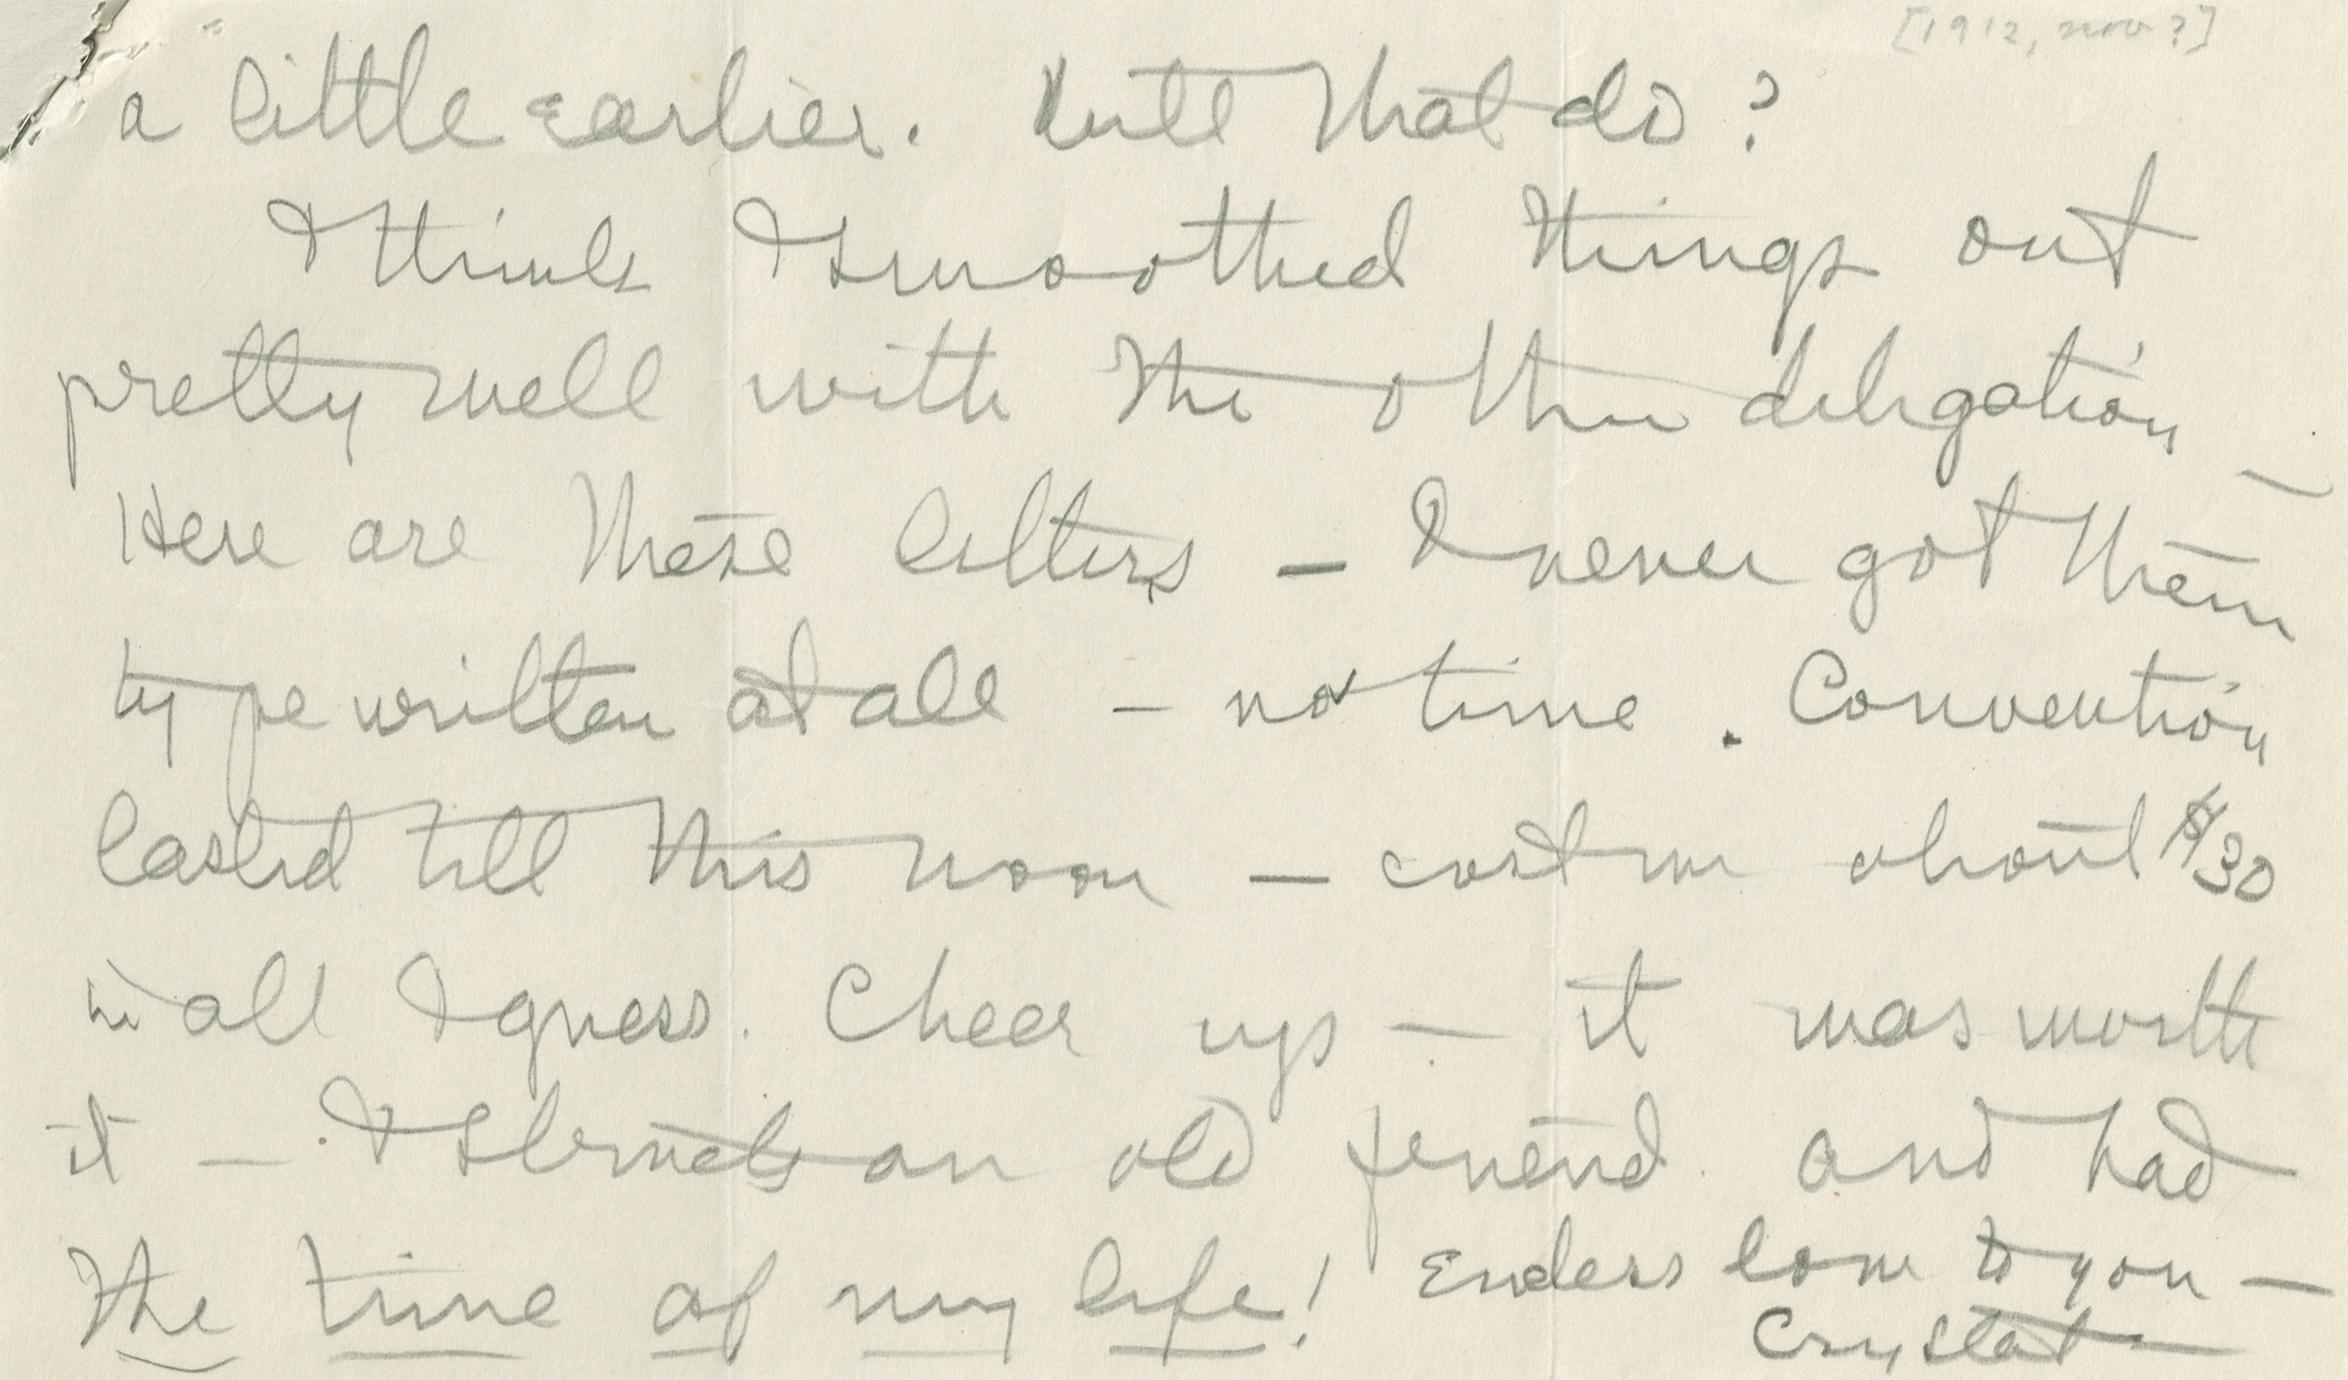 [1912, Nov?]
a little earlier. Will that do?
I think I smoothed things out
pretty well with the other delegation –
Here are these letters – I never got them
typewritten at all – no time. Convention
lasted till this noon – cost me about $30
in all I guess. Cheer up – it was worth
it – I struck an old friend and had
the time of my life! Endless love to you –
Crystal